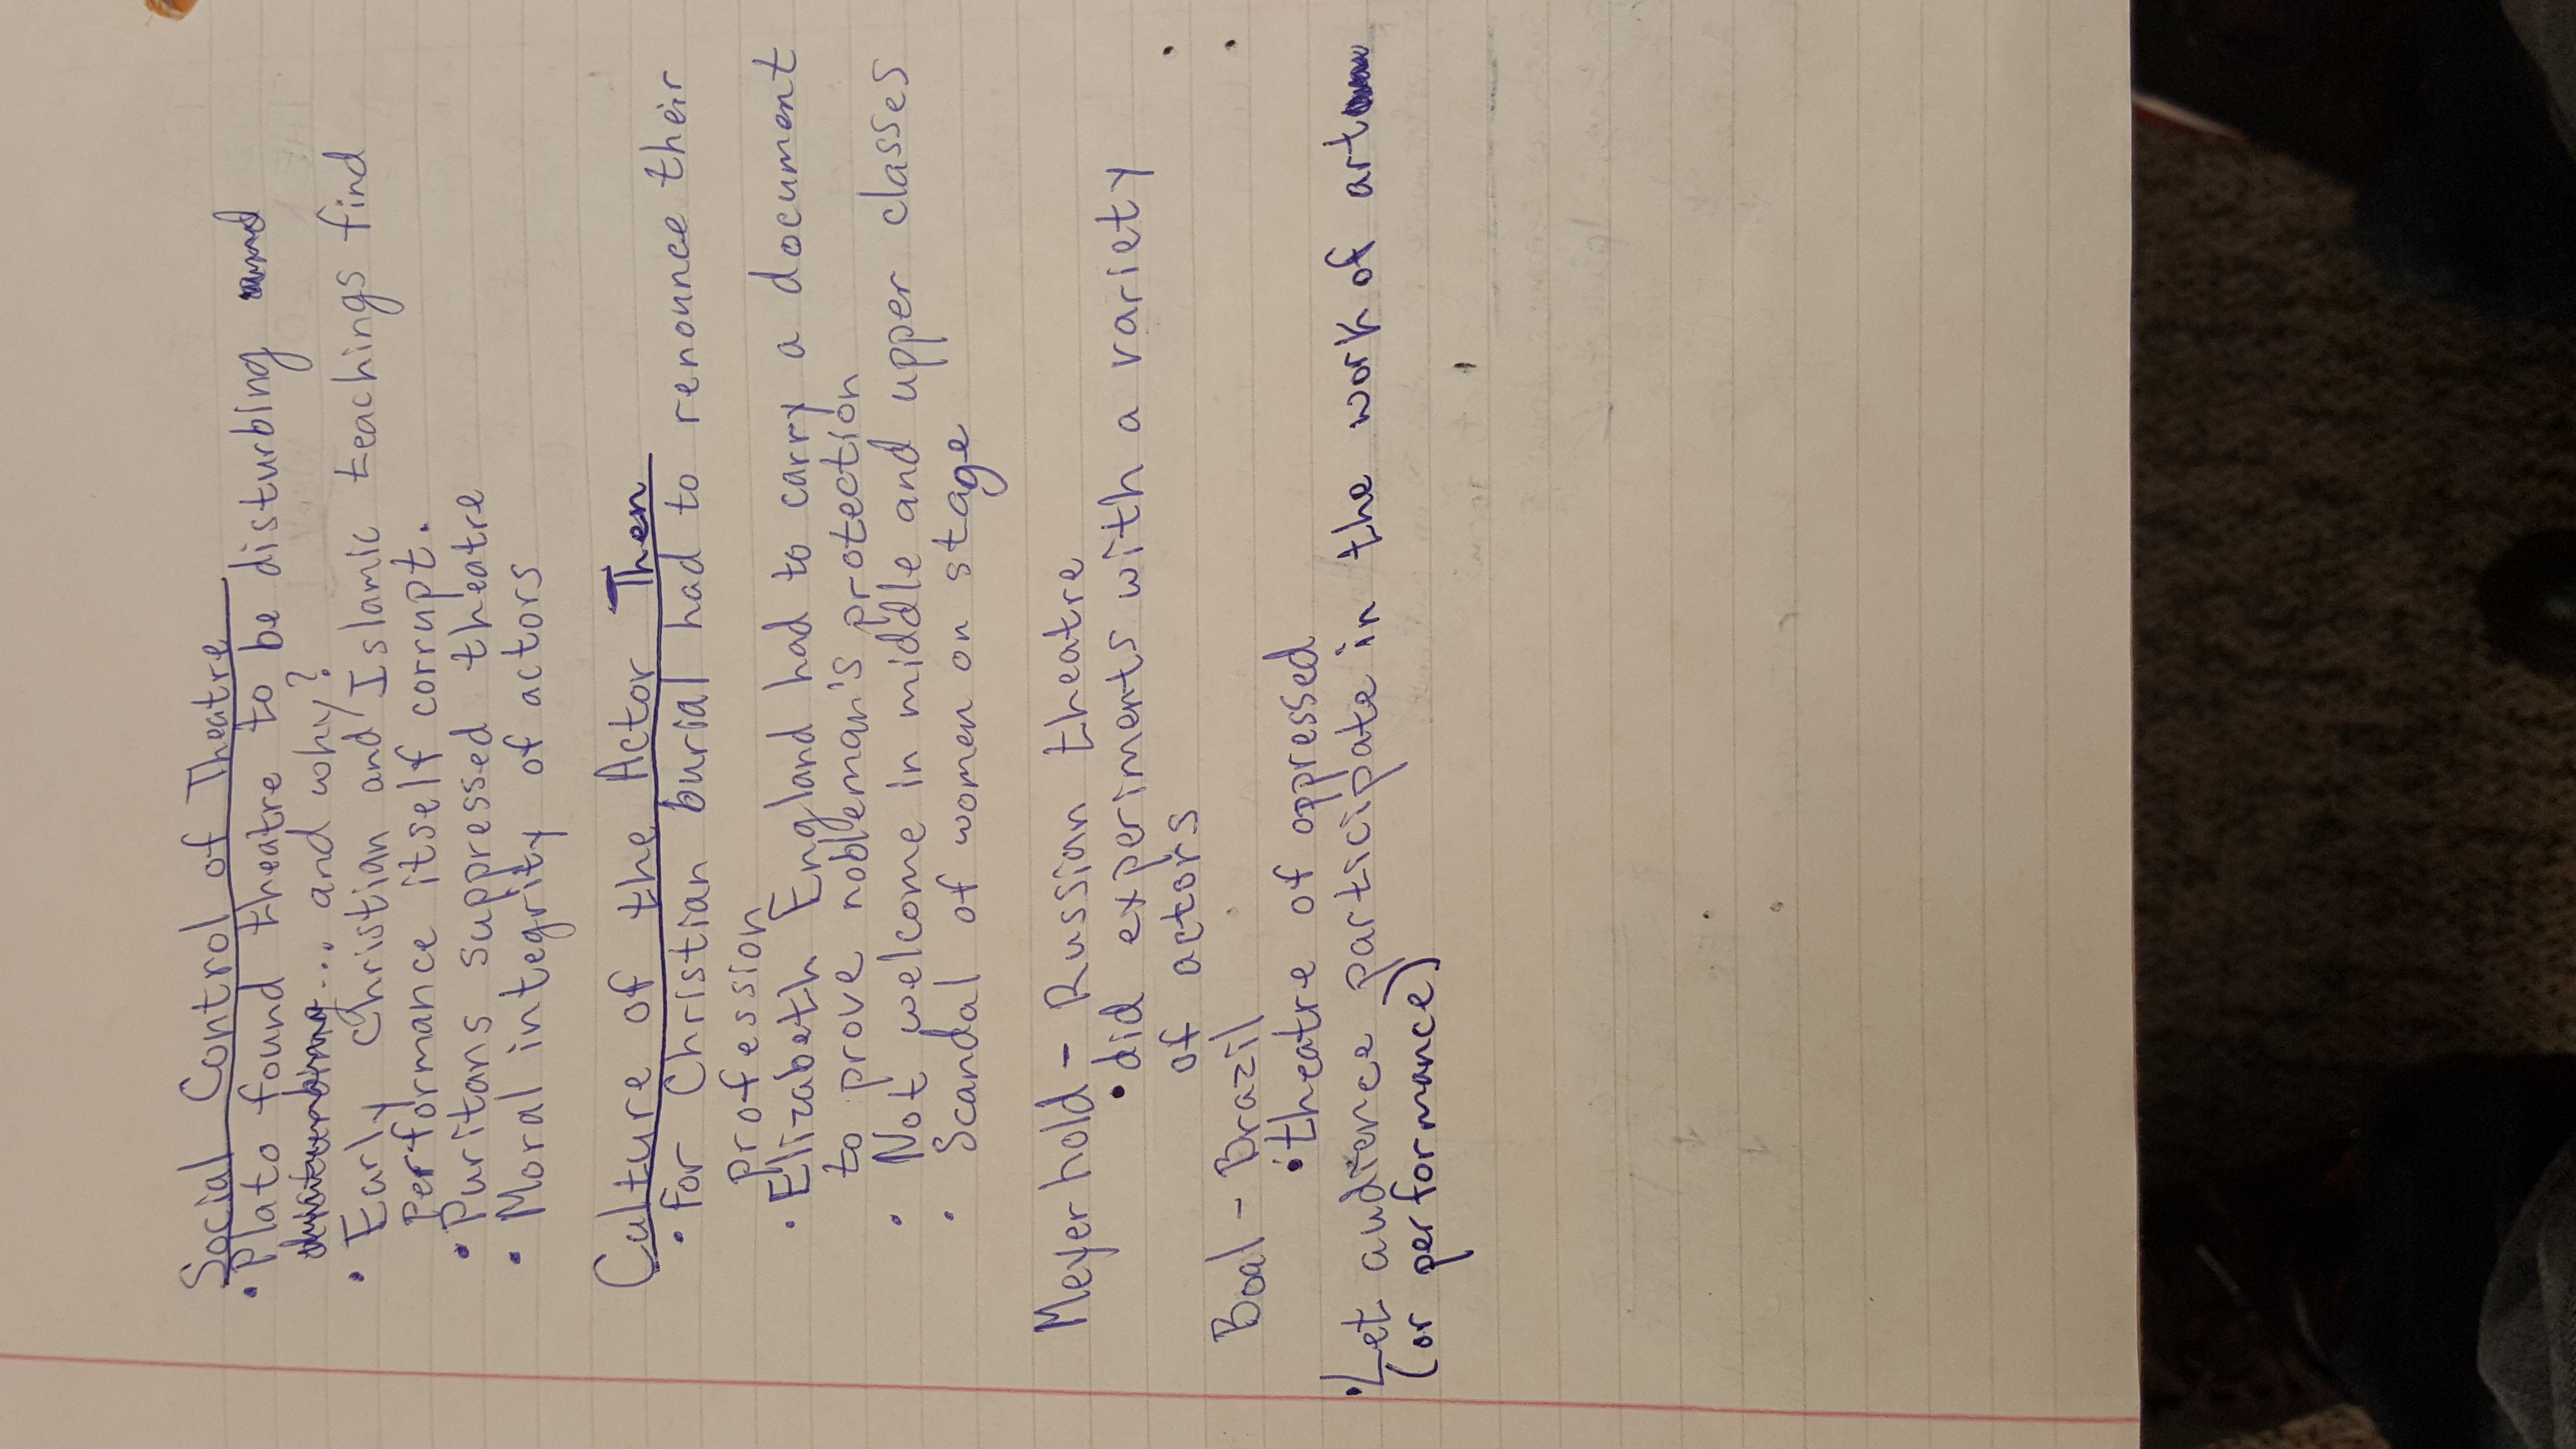 Social Control of Theatre
• Plato found theatre to be disturbing
... and why?
• Early Christian and Islamic teachings find
Performance itself corrupt.
• Puritans suppressed theatre
• Moral integrity of actors
Culture of the Actor Then
• For Christian burial had to renounce their
profession
• Elizabeth England had to carry a document
to prove nobleman's protection
• Not welcome in middle and upper classes
• Scandal of women on stage
Meyerhold - Russian theatre
• did experiments with a variety
of actors
Boal - Brazil
• theatre of oppressed
• Let audience participate in the work of art
(or performance)